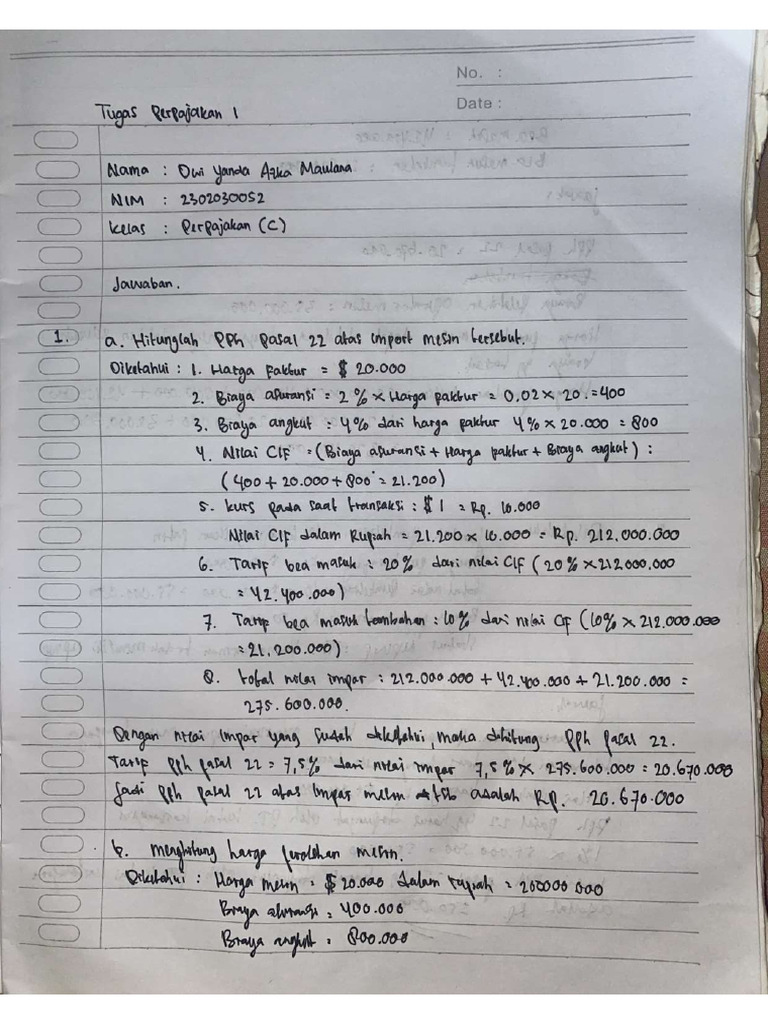 No. :
Date :
Tugas Perpajakan 1
Nama : Dwi Yanda Azka Maulana
NIM : 2302030052
Kelas : Perpajakan (C)
Jawaban.
1. a. Hitunglah PPh Pasal 22 atas import mesin tersebut.
Diketahui : 1. Harga Faktur = $ 20.000
2. Biaya asuransi = 2% × Harga faktur = 0,02 × 20. = 400
3. Biaya angkut : 4% dari harga faktur 4% × 20.000 = 800
4. Nilai CIF = (Biaya asuransi + Harga faktur + Biaya angkut) :
(400 + 20.000 + 800 = 21.200)
5. kurs pada saat transaksi : $ 1 = Rp. 10.000
Nilai CIF dalam Rupiah = 21.200 × 10.000 = Rp. 212.000.000
6. Tarif bea masuk : 20% dari nilai CIF (20% × 212.000.000
= 42.400.000)
7. Tarif bea masuk tambahan : 10% dari nilai CIF (10% × 212.000.000
= 21.200.000)
8. total nilai impor : 212.000.000 + 42.400.000 + 21.200.000 =
275.600.000.
Dengan nilai impor yang sudah diketahui, maka dihitung PPh pasal 22.
Tarif PPh pasal 22 = 7,5% dari nilai impor 7,5% × 275.600.000 = 20.670.000
Jadi PPh pasal 22 atas impor mesin tsb adalah Rp. 20.670.000
b. menghitung harga perolehan mesin.
Diketahui : Harga mesin = $ 20.000 dalam rupiah = 200000 000
Biaya asuransi = 400.000
Biaya angkut = 800.000